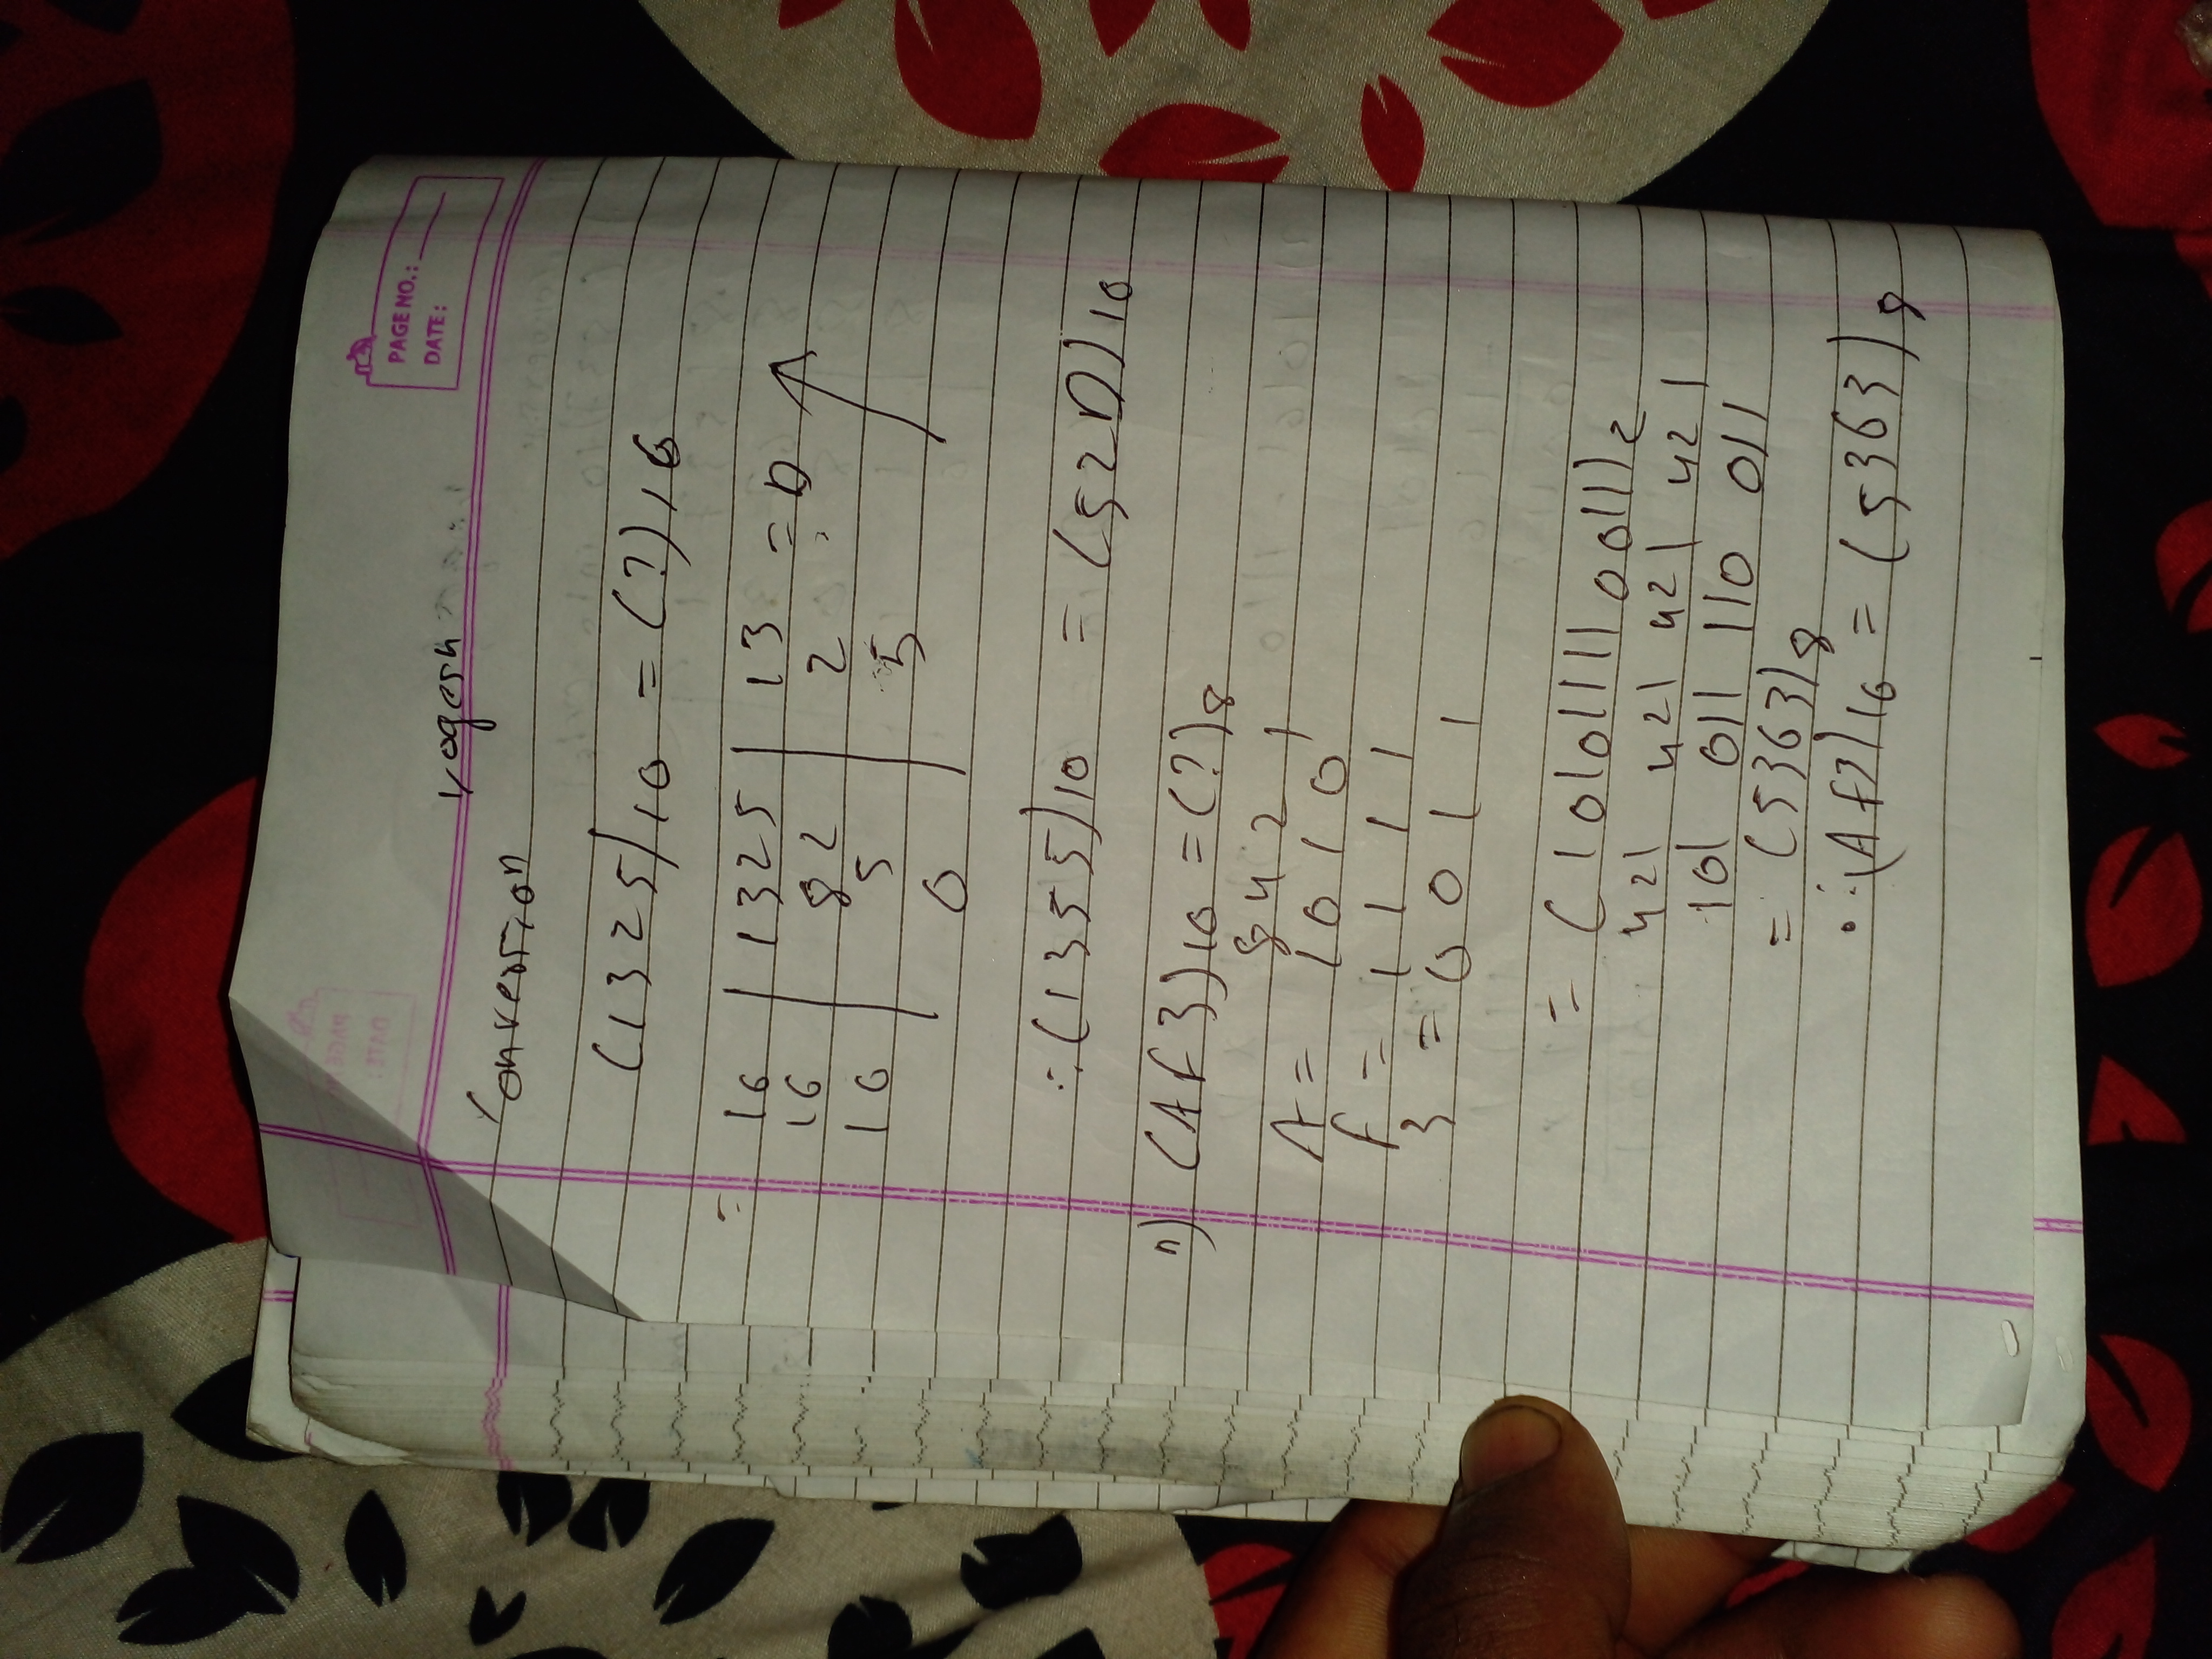 PAGE NO.:
DATE:
yogesh
Conversion
(1325)10 = (?)16
= 16 | 1325 | 13 = D
16 | 82 | 2
16 | 5 | 5
0
∴(1355)10 = (52D)10
(Af3)10 = (?)8
8 4 2 1
A = 1 0 1 0
f = 1 1 1 1
3 = 0 0 1 1
= (101011110011)2
421 421 421 421
101 011 110 011
= (5363)8
∴(Af3)16 = (5363)8